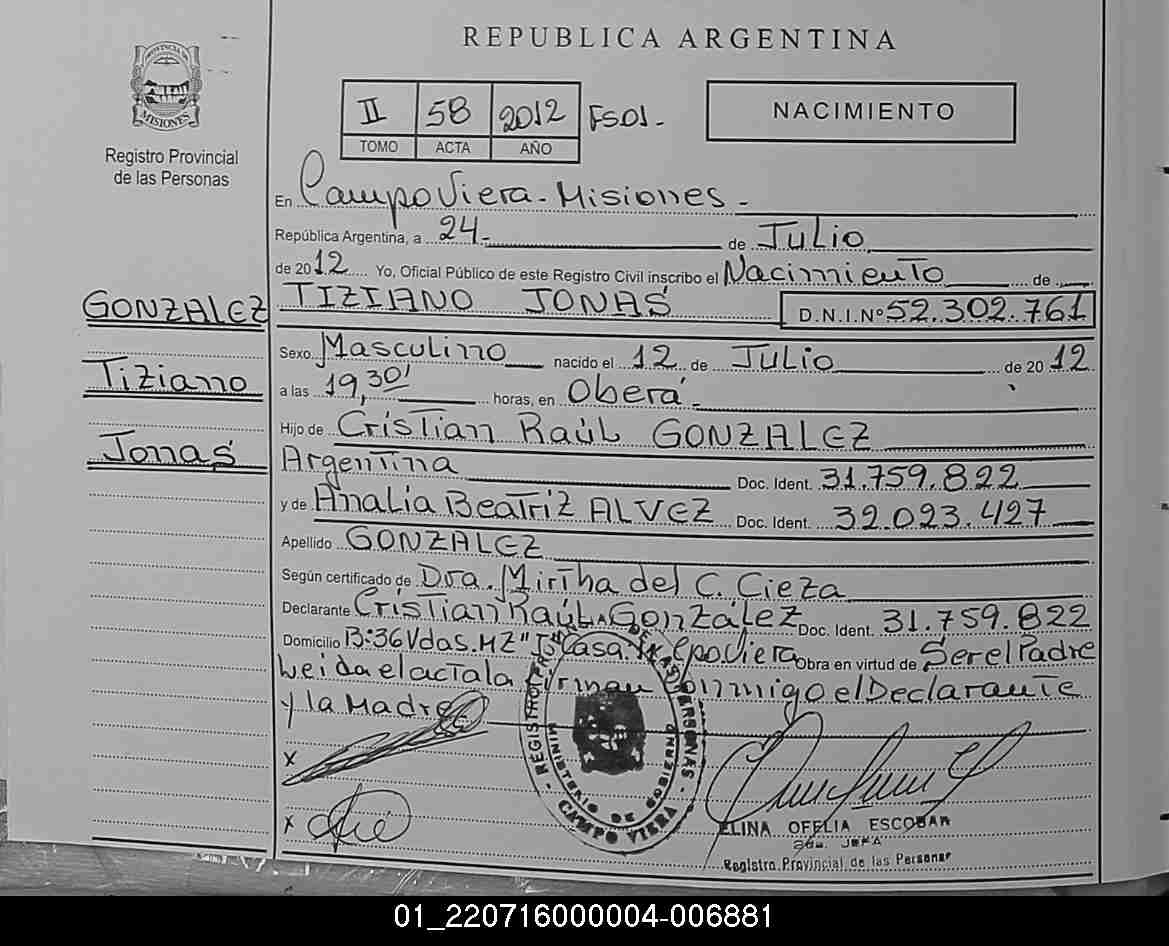 REPUBLICA ARGENTINA
PROVINCIA DE
MISIONES
Registro Provincial
de las Personas
II 58 2012 FS01-
TOMO ACTA AÑO
NACIMIENTO
En Campo Viera - Misiones -
República Argentina, a 24- de Julio
de 2012 Yo, Oficial Público de este Registro Civil inscribo el Nacimiento de
GONZALEZ
Tiziano
Jonas
TIZIANO JONAS D.N.I.Nº 52.302.761
Sexo Masculino nacido el 12 de Julio de 2012
a las 19,30' horas, en Oberá-
Hijo de Cristian Raúl GONZALEZ
Argentina Doc. Ident. 31.759.822
y de Analia Beatriz ALVEZ Doc. Ident. 32.023.427
Apellido GONZALEZ
Según certificado de Dra. Mirtha del C. Cieza
Declarante Cristian Raúl González Doc. Ident. 31.759.822
Domicilio B:36 Vdas. MZ "J" Casa: Cpo Viera Obra en virtud de Ser el Padre
Leida el acta la firman conmigo el Declarante
y la Madre
x
x
REGISTRO DE LAS PERSONAS
MINISTERIO DE GOBIERNO
- CAMPO VIERA -
ELINA OFELIA ESCOBAR
JEFA
Registro Provincial de las Personas
01_220716000004-006881